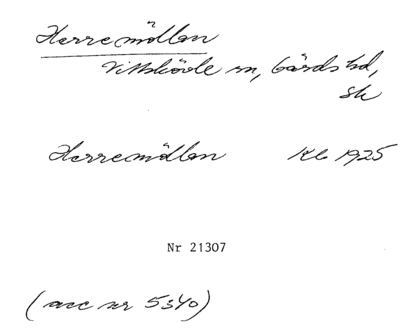 Herremöllan
Vittskövle sn, Gärds hd,
Sk
Herremöllan Kb 1925
Nr 21307
(acc nr 5340)